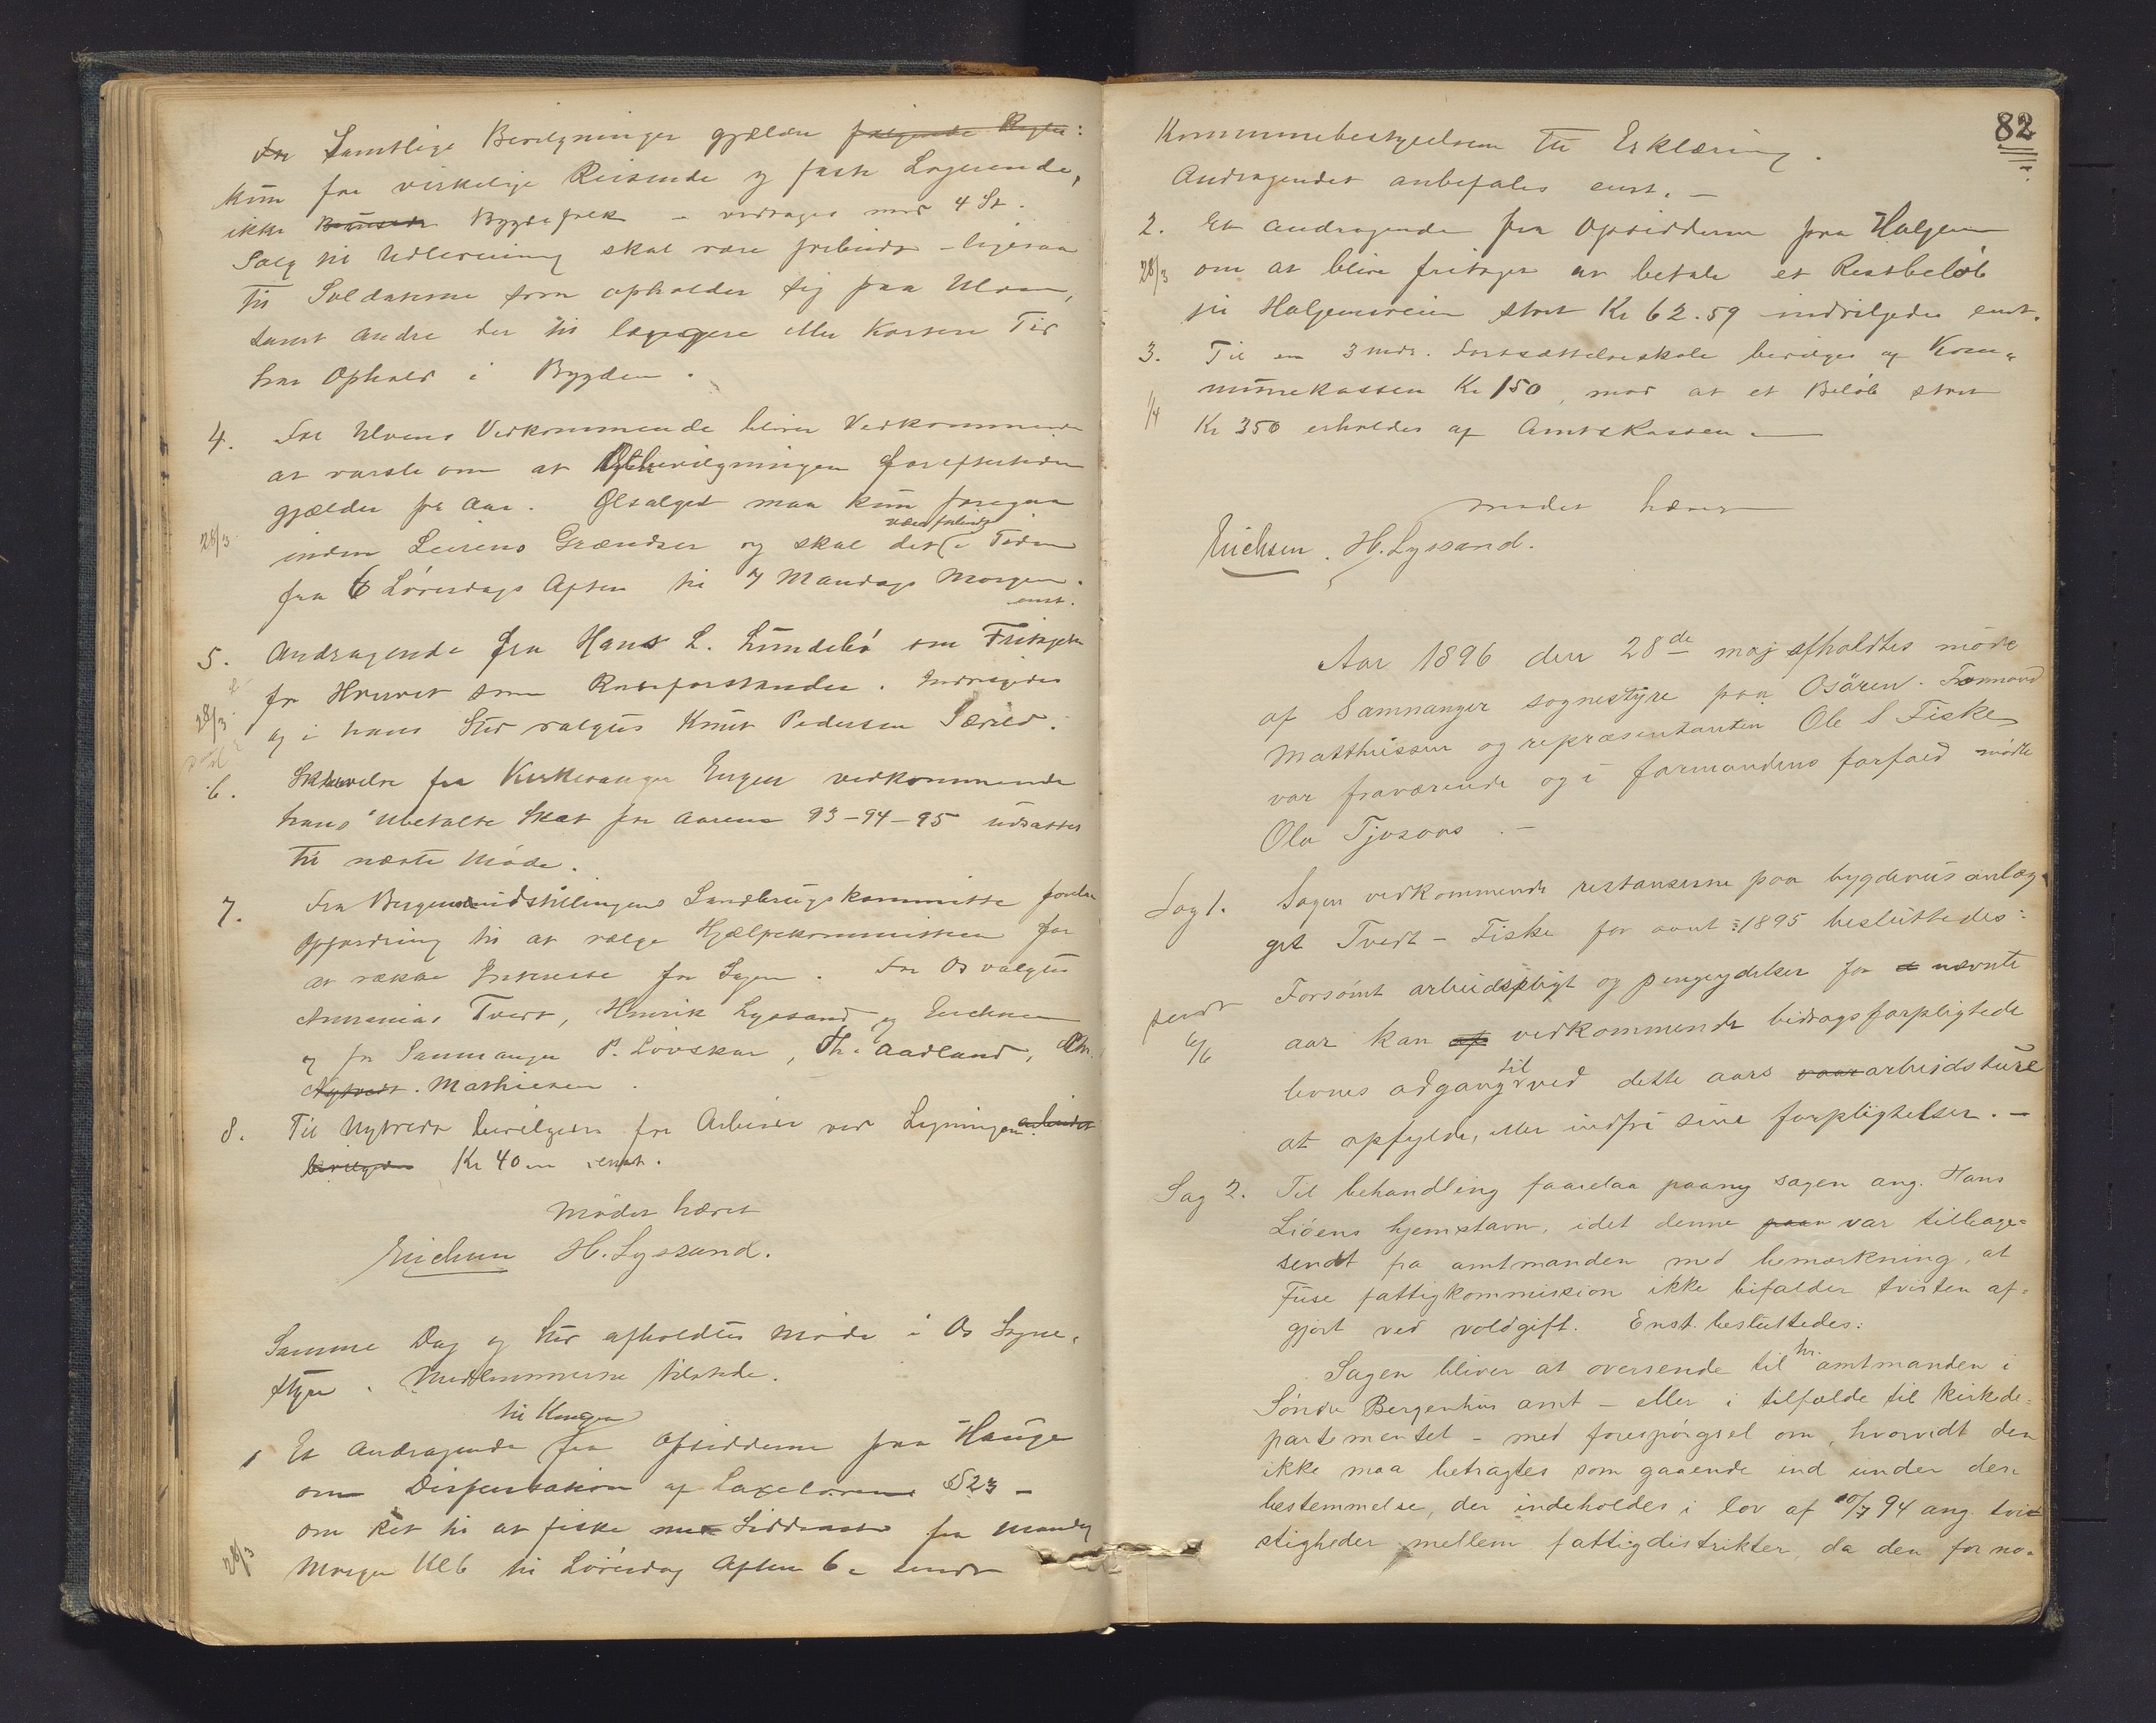 For Samtlige Bevilgninger gjælder følgende Regler:
kun for virkelige Reisende og faste Logerende,
ikke Bygdefolk – vedtages mod 4 St.
Salg til Udlevering skal være forbudt – ligesaa
til Soldaterne som opholder sig paa Ulven,
samt andre der til længere eller kortere Tid
har Ophold i Bygden.
4. For Ulvens Vedkommende bliver Vedkommende
at varsle om at Ølbevilgningen for eftertiden
gjælder pr Aar. Ølsalget maa kun foregaa
være forbudt
28/3 inden Leirens Grændser og skal det i Tiden
fra 6 Lørdags Aften til 7 Mandags Morgen.
enst.
5. Andragende fra Hans L. Lundebø om Fritagelse
for Hvervet som Rodeforstander. Indvilgedes
28/3 og i hans Sted valgtes Knut Pedersen Særvold.
6. Skrivelse fra Kirkesanger Engen vedkommende
hans ubetalte Skat for Aarene 93–94–95 udsattes
til næste Møde.
7. Fra Bergensudstillingens Landbrugskommitte forelaa
Opfordring til at vælge Hjælpekommitteen for
at vække Interesse for Sagen. For Os valgtes
Annanias Tveit, Henrik Lyssand og Erichsen
og for Samnanger P. Løvskar, Th. Aadland,
Nytvedt. Mathiesen.
8. Til Nytvedt bevilgedes for Arbeide ved Ligningen arbeidet
bevilgedes Kr 40 enst.
Mødet hævet
Erichsen H. Lyssand.
Samme Dag og Sted afholdtes Møde i Os Sogne-
styre. Medlemmerne tilstede.
til Kongen
1 Et Andragende fra Opsidderne paa Hauge
om Dispensation af Laxelovens §23 –
om Ret til at fiske med Siddenot fra Mandag
28/3 Morgen Kl 6 til Lørdag Aften 6 – sendt
82
Kommunebestyrelsen til Erklæring.
Andragendet anbefales enst. –
2. Et Andragende fra Opsidderne paa Halgem
28/3 om at blive fritaget at betale et Restbeløb
til Halgemsveien stort Kr 62.59 indvilgedes enst.
3. Til en 3 mdr. Fortsættelseskole bevilges af Kom-
munekassen Kr 150, mod at et Beløb stort
1/4 Kr 350 erholdes af Amtskassen –
mødet hævet
Erichsen. H. Lyssand.
Aar 1896 den 28de maj afholdtes møde
af Samnanger sognestyre paa Osøren. Formand
Matthiesen og repræsentanten Ole S Tiske
var fraværende og i formandens forfald mødte
Ola Tjosaas. –
Sag 1. Sagen vedkommende restanserne paa bygdeveisanlæg-
get Tvedt – Fiske for aaret 1895 besluttedes:
sendt Forsømt arbeidspligt og pengeydelser for nævnte
6/6 aar kan af vedkommende bidragsforpligtede
levnes adgang til ved dette aars vaararbeidsture
at opfylde, eller indfri sine forpligtelser. –
Sag 2. Til behandling faarelaa paany sagen ang. Hans
Liøens hjemstavn, idet denne paan var tilbage-
sendt fra amtmanden med bemærkning, at
Fuse fattigkommission ikke bifalder tvisten af-
gjort ved voldgift. Enst. besluttedes:
Sagen bliver at oversende til hr. amtmanden i
Søndre Bergenhus amt – eller i tilfælde til kirkede-
partementet – med forespørgsel om, hvorvidt den
ikke maa betragtes som gaaende ind under den
bestemmelse, der indeholdes i lov af 20/7 94 ang. tvi-
stigheder mellem fattigdistrikter da den for no-